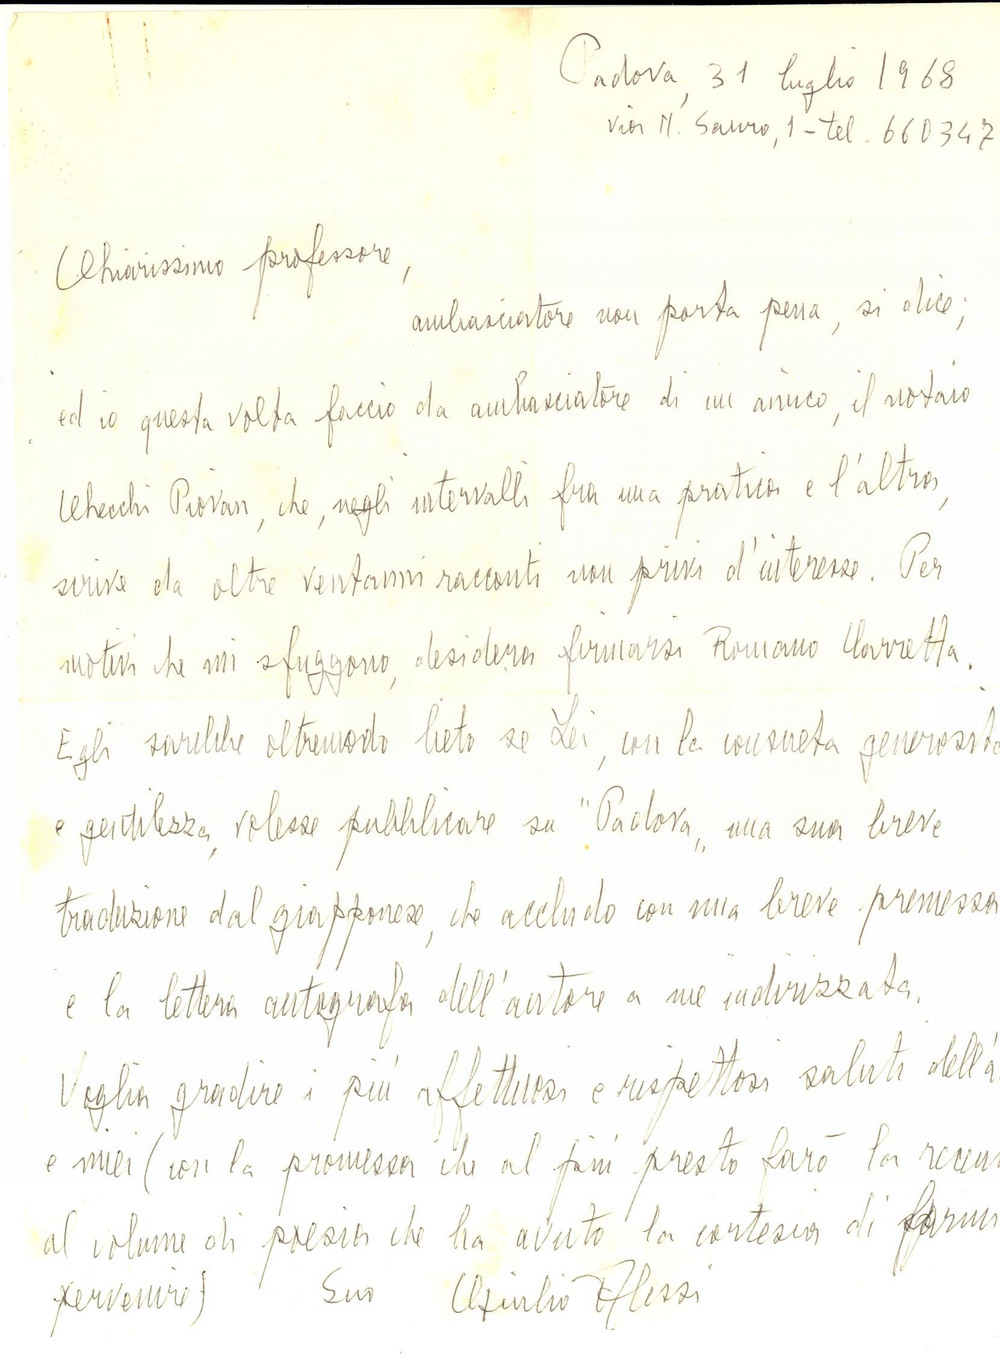 Padova, 31 luglio 1968
via N. Sauro, 1 - tel. 660347
Chiarissimo professore,
ambasciatore non porta pena, si dice;
ed io questa volta faccio da ambasciatore di un amico, il notaio
Checchi Piovan, che, negli intervalli fra una pratica e l'altra,
scrive da oltre ventanni racconti non privi d'interesse. Per
motivi che mi sfuggono, desidera firmarsi Romano Carretta.
Egli sarebbe oltremodo lieto se Lei, con la consueta generosità
e gentilezza, volesse pubblicare su "Padova" una sua breve
traduzione dal giapponese, che accludo con una breve premessa
e la lettera autografa dell'autore a me indirizzata.
Voglia gradire i più affettuosi e rispettosi saluti dell'a
e miei (con la promessa che al più presto farò la recen
al volume di poesia che ha avuto la cortesia di farmi
pervenire)    Suo    Giulio Alessi